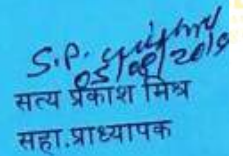 S.P.
05/08/2019
सत्य प्रकाश मिश्र
सहा.प्राध्यापक